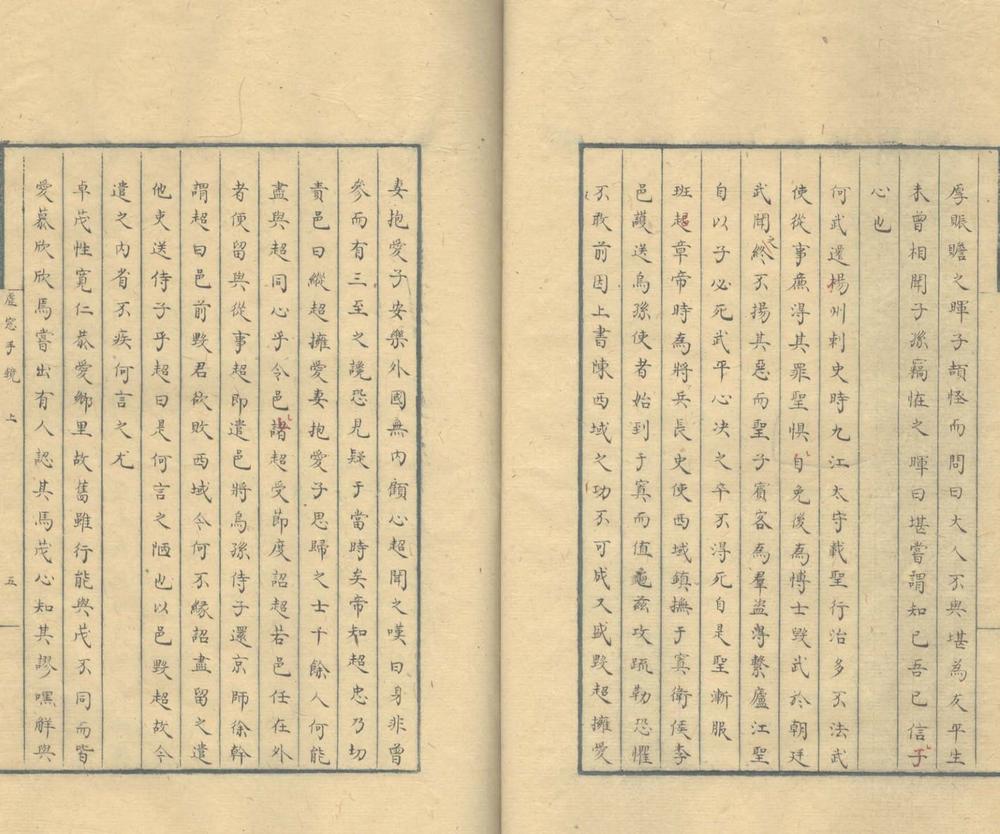 厚賑贍之暉子頡怪而問曰大人不與堪為友平生
未曾相聞子孫竊恠之暉曰堪嘗謂知已吾已信子
心也
何武遷揚州刺史時九江太守戴聖行治多不法武
使從事廉淂其罪聖懼自免後為博士毀武於朝廷
武聞之終不揚其惡而聖子賓客為羣盜淂繫廬江聖
自以子必死武平心决之卒不淂死自是聖漸服
班超章帝時為將兵長史使西域鎮撫于寘衛侯李
邑護送烏孫使者始到于寘而值龜茲攻疏勒恐懼
不敢前因上書陳西域之功不可成又盛毀超擁愛
妻抱愛子安樂外國無內顧心超聞之嘆曰身非曾
參而有三至之䜛恐見疑于當時矣帝知超忠乃切
責邑曰縱超擁愛妻抱愛子思歸之士千餘人何能
盡與超同心乎令邑諸超受節度詔超若邑任在外
者便留與從事超即遣邑將烏孫侍子還京師徐幹
謂超曰邑前毀君欲敗西域今何不緣詔盡留之遣
他吏送侍子乎超曰是何言之陋也以邑毀超故今
遣之內省不疾何言之尤
卓茂性寬仁恭愛鄉里故舊雖行能與茂不同而皆
愛慕欣欣焉嘗出有人認其馬茂心知其謬嘿解與
虛窓手鏡 上 五